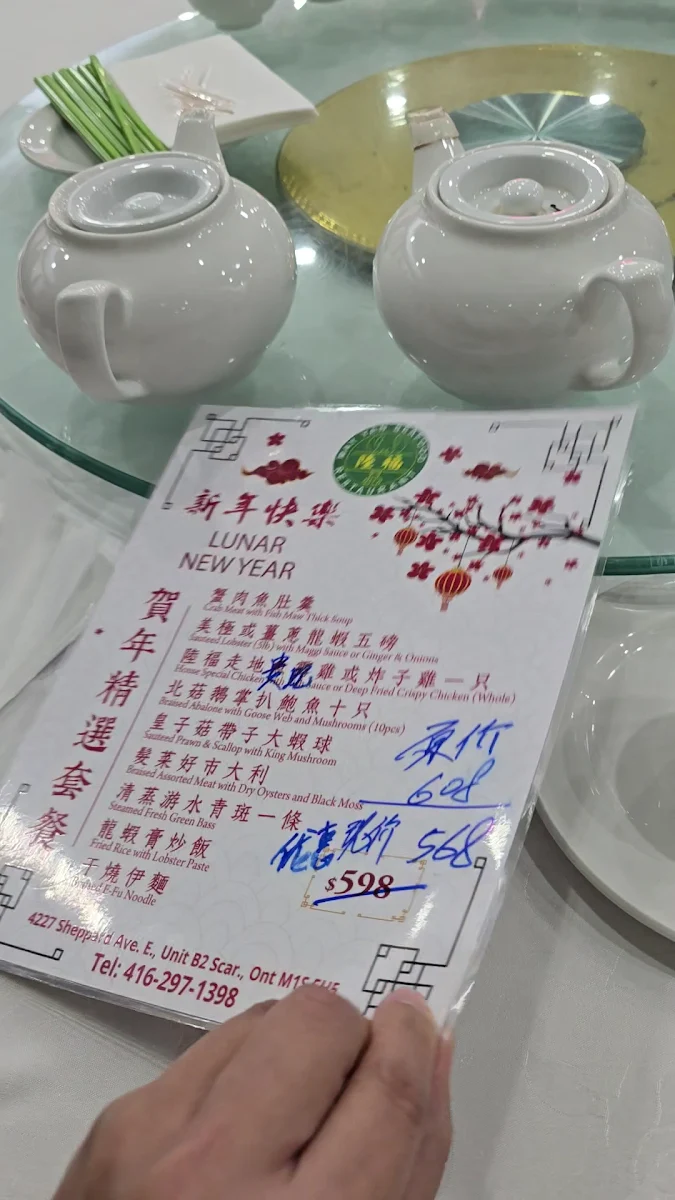 陸福
新年快樂
LUNAR
NEW YEAR
賀年精選套餐
蟹肉魚肚羹
Crab Meat with Fish Maw Thick Soup
美極或薑蔥龍蝦五磅
Sauteed Lobster (5lb) with Maggi Sauce or Ginger & Onions
陸福走地 雞或炸子雞一只
House Special Chicken Sauce or Deep Fried Crispy Chicken (Whole)
北菇鵝掌扒鮑魚十只
Braised Abalone with Goose Web and Mushrooms (10pcs)
皇子菇帶子大蝦球
Sauteed Prawn & Scallop with King Mushroom
髮菜好市大利
Braised Assorted Meat with Dry Oysters and Black Moss
清蒸游水青斑一條
Steamed Fresh Green Bass
龍蝦膏炒飯
Fried Rice with Lobster Paste
干燒伊麵
E-Fu Noodle
原价
608
优惠 568
$598
4227 Sheppard Ave. E., Unit B2 Scar., Ont M1S
Tel: 416-297-1398